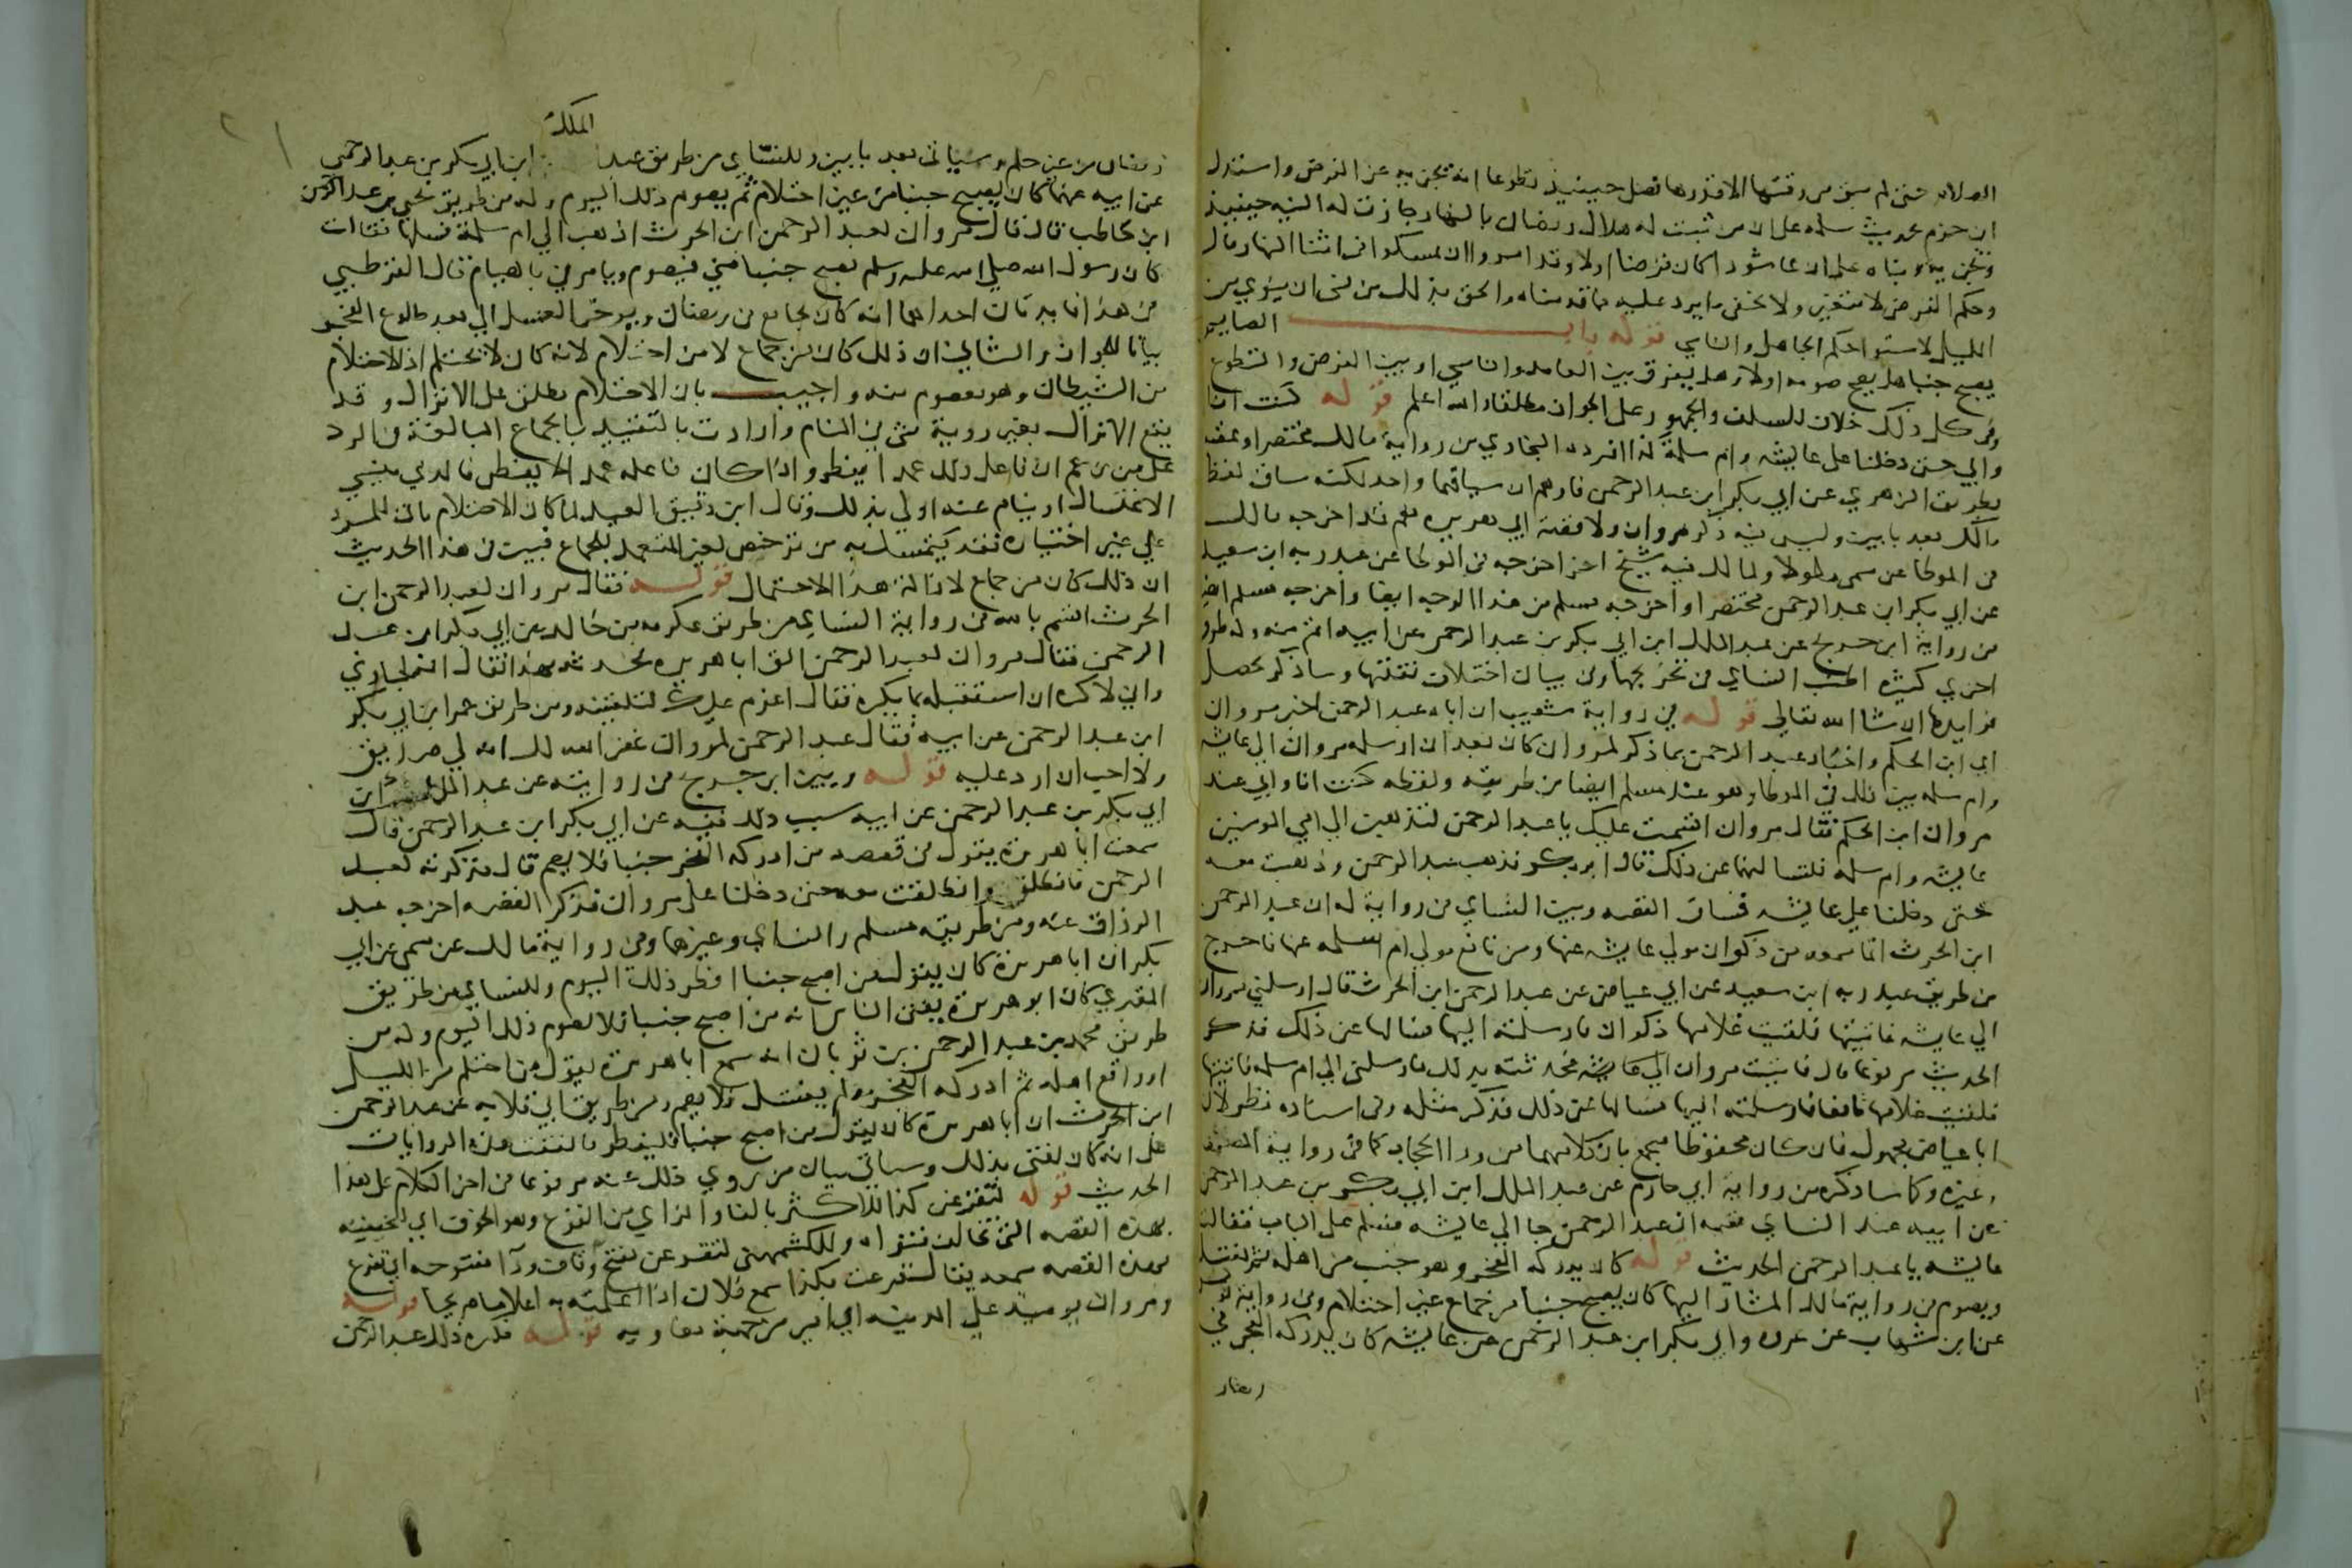 الصلاة حتى لم يبق من وقتها الا قدرها فصلى حينيذ تطوعا انه يجزيه عن الفرض واستدل
ابن حزم بحديث سلمة على ان من ثبت له هلال رمضان بالنهار جاز له النيه حينيذ
ويجزيه وبناه على ان عاشورا كان فرضا اولا وقد امروا ان يمسكوا في اثنا النهار قال
وحكم الفرض لا يتغير ولا يخفى ما يرد عليه مما قدمناه والحق بذلك من نسي ان ينوي من
الليل لاستوا حكم الجاهل والناسي قوله باب الصايم
يصبح جنبا هل يصح صومه اولا وهل يفرق بين العامد والناسي او بين الفرض والتطوع
وفي كل ذلك خلاف للسلف والجمهور على الجواز مطلقا والله اعلم قوله كنت انا
وابي حتى دخلنا على عايشه وام سلمة كذا افرده البخاري من رواية مالك مختصرا وعقبه
بطريق الزهري عن ابي بكر ابن عبد الرحمن فاوهم ان سياقهما واحد لكنه ساق لفظ
مالك بعد بابين وليس فيه ذكر مروان ولا قصة ابي هريره نعم قد اخرجه مالك
في الموطا عن سمي مطولا ولمالك فيه شيخ اخر اخرجه في الموطا عن عبد ربه ابن سعيد
عن ابي بكر ابن عبد الرحمن مختصرا واخرجه مسلم من هذا الوجه ايضا واخرجه مسلم ايضا
من رواية ابن جريج عن عبد الملك ابن ابي بكر بن عبد الرحمن عن ابيه اتم منه وله طرق
اخرى كثيره اطنب النساي في تخريجها وفي بيان اختلاف نقلتها وساذكر محصل
فوايدها ان شا الله تعالى قوله في رواية شعيب ان اباه عبد الرحمن اخبر مروان
اي ابن الحكم واخبار عبد الرحمن بما ذكر لمروان كان بعد ان ارسله مروان الى عايشه
وام سلمه بين ذلك في الموطا وهو عند مسلم ايضا من طريقه ولفظه كنت انا وابي عند
مروان ابن الحكم فقال مروان اقسمت عليك يا عبد الرحمن لتذهبن الى امي المومنين
عايشه وام سلمه فلتسالنهما عن ذلك قال ابو بكر فذهب عبد الرحمن وذهبت معه
حتى دخلنا على عايشه فساق القصه وبين النساي في رواية له ان عبد الرحمن
ابن الحرث انما سمعه من ذكوان مولى عايشه عنها ومن نافع مولى ام سلمه عنها فاخرج
من طريق عبد ربه ابن سعيد عن ابي عياض عن عبد الرحمن ابن الحرث قال ارسلني مروان
الى عايشه فاتيتها فلقيت غلامها ذكوان فارسلته اليها فسالها عن ذلك فذكر
الحديث مرفوعا قال فاتيت مروان فحدثته بذلك فارسلني الى ام سلمه فاتيتها
فلقيت غلامها نافعا فارسلته اليها فسالها عن ذلك فذكر مثله وفي اسناده نظر لان
ابا عياض مجهول فان كان محفوظا فيجمع بان كلا منهما من ورا الحجاب كما في رواية
وغيره وكما ساذكره من رواية ابي حازم عن عبد الملك ابن ابي بكر بن عبد الرحمن
عن ابيه عند النساي ففيه ان عبد الرحمن جا الى عايشه فسلم على الباب فقالت
عايشه يا عبد الرحمن الحديث قوله كان يدركه الفجر وهو جنب من اهله ثم يغتسل
ويصوم في رواية مالك المشار اليها كان يصبح جنبا من جماع غير احتلام وفي رواية يونس
عن ابن شهاب عن عروه وابي بكر ابن عبد الرحمن عن عايشه كان يدركه الفجر في
رمضان
الملك
رمضان من غير حلم وسياتي بعد بابين وللنساي من طريق عبد ابن ابي بكر بن عبد الرحمن
عن ابيه عنها كان يصبح جنبا من غير احتلام ثم يصوم ذلك اليوم وله من طريق يحيى بن عبد الرحمن
ابن حاطب قال قال مروان لعبد الرحمن ابن الحرث اذهب الى ام سلمة فسلها فقالت
كان رسول الله صلى الله عليه وسلم يصبح جنبا مني فيصوم ويامرني بالصيام قال القرطبي
في هذا فايدتان احداهما انه كان يجامع في رمضان ويوخر الغسل الى بعد طلوع الفجر
بيانا للجواز والثاني ان ذلك كان من جماع لا من احتلام لانه كان لا يحتلم اذ الاحتلام
من الشيطان وهو معصوم منه واجيب بان الاحتلام يطلق على الانزال وقد
يقع الانزال بغير روية شي في المنام وارادت بالتقييد بالجماع المبالغة في الرد
على من زعم ان فاعل ذلك عمدا يفطر واذا كان فاعله عمدا لا يفطر فالذي ينسى
الاغتسال او ينام عنه اولى بذلك وقال ابن دقيق العيد لما كان الاحتلام ياتي للمرء
على غير اختياره فقد يتمسك به من يرخص لغير المتعمد للجماع فبين في هذا الحديث
ان ذلك كان من جماع لازالة هذا الاحتمال قوله فقال مروان لعبد الرحمن ابن
الحرث اقسم بالله في رواية النساي من طريق عكرمه بن خالد عن ابي بكر ابن عبد
الرحمن فقال مروان لعبد الرحمن الق ابا هريره فحدثه بهذا فقال انه لجاري
واني لاكره ان استقبله بما يكره فقال اعزم عليك لتلقينه ومن طريق عمر ابن ابي بكر
ابن عبد الرحمن عن ابيه فقال عبد الرحمن لمروان غفر الله لك انه لي صديق
ولا احب ان ارد عليه قوله وبين ابن جريج في روايته عن عبد الملك ابن
ابي بكر بن عبد الرحمن عن ابيه سبب ذلك ففيه عن ابي بكر ابن عبد الرحمن قال
سمعت ابا هريرة يقول في قصصه من ادركه الفجر جنبا فلا يصم قال فذكرته لعبد
الرحمن فانطلق وانطلقت معه حتى دخلنا على مروان فذكر القصه اخرجه عبد
الرزاق عنه ومن طريقه مسلم والنساي وغيرهما وفي رواية مالك عن سمي عن ابي
بكر ان ابا هريرة كان يقول من اصبح جنبا افطر ذلك اليوم وللنساي من طريق
المقبري كان ابو هريرة يفتي الناس انه من اصبح جنبا فلا يصوم ذلك اليوم وله من
طريق محمد بن عبد الرحمن بن ثوبان انه سمع ابا هريرة يقول من احتلم من الليل
او واقع اهله ثم ادركه الفجر ولم يغتسل فلا يصم ومن طريق ابي قلابه عن عبد الرحمن
ابن الحرث ان ابا هريرة كان يقول من اصبح جنبا فليفطر فاتفقت هذه الروايات
على انه كان يفتي بذلك وسياتي بيان من روى ذلك عنه مرفوعا في اخر الكلام على هذا
الحديث قوله لتفزعن كذا للاكثر بالفا والزاي من الفزع وهو الخوف اي لتخيفنه
بهذه القصه التي تخالف فتواه وللكشميهني لتقرعن بفتح وقاف ورا مفتوحه اي تقرع
بهذه القصه سمعه يقال قرعت بكذا سمع فلان اذا اعلمته به اعلاما صريحا قوله
ومروان يوميذ على المدينه اي امير من جهة معاويه قوله فكره ذلك عبد الرحمن